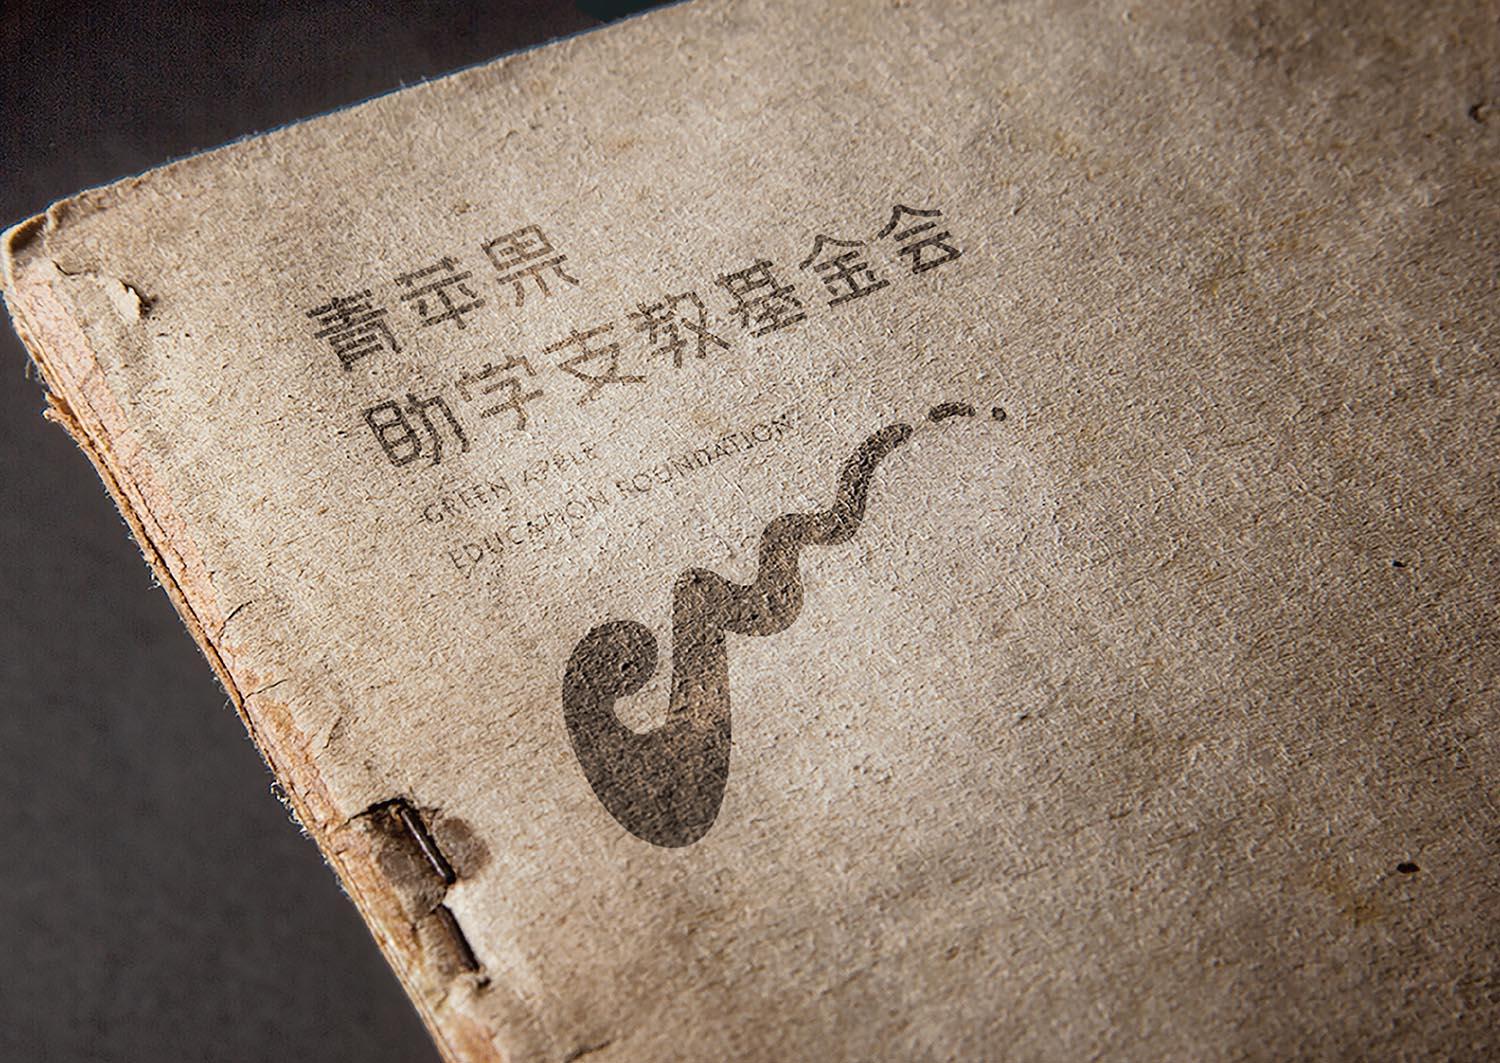 青苹果
助学支教基金会
GREEN APPLE
EDUCATION FOUNDATION